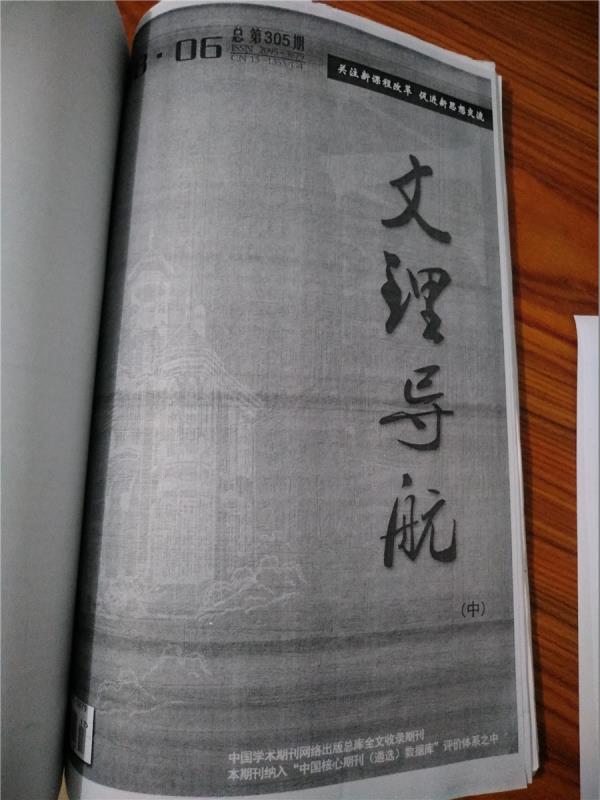 8·06
总第305期
ISSN 2095-3879
关注新课程改革 促进新思想交流
文理导航
（中）
中国学术期刊网络出版总库全文收录期刊
本期刊纳入“中国核心期刊（遴选）数据库”评价体系之中